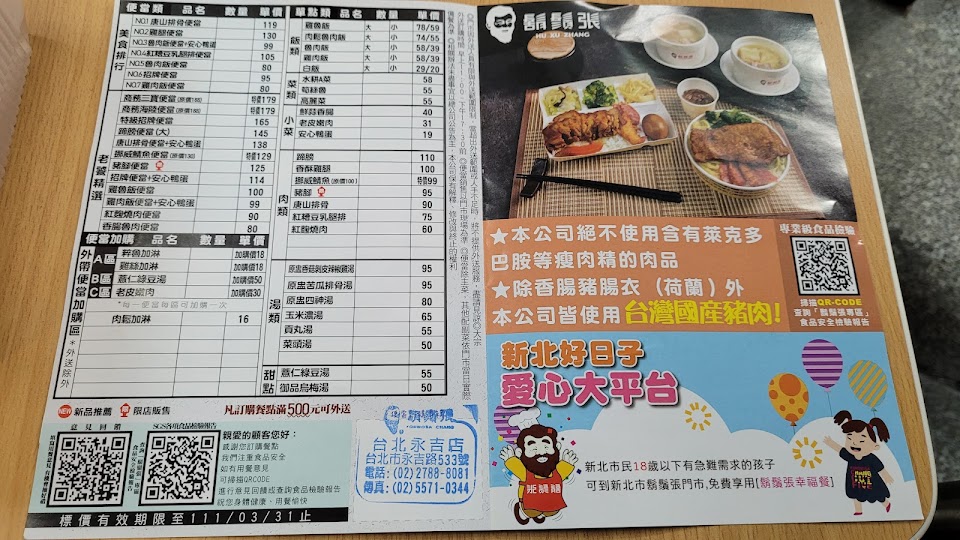 便當類 品名 數量 單價
美食排行
NO.1 唐山排骨便當 119
NO.2 雞腿便當 130
NO.3 魯肉飯便當+安心鴨蛋 99
NO.4 紅糟豆乳腿排便當 105
NO.5 魯肉飯便當 80
NO.6 招牌便當 95
NO.7 雞肉飯便當 80
老饕精選
商務三寶便當(原價185) 特價179
商務海陸便當(原價185) 特價179
特級招牌便當 165
蹄膀便當(大) 145
唐山排骨便當+安心鴨蛋 138
挪威鯖魚便當(原價130) 特價129
豬腳便當 125
招牌便當+安心鴨蛋 114
雞魯飯便當 100
雞肉飯便當+安心鴨蛋 99
紅麴燒肉便當 90
香腸魯肉便當 80
便當加購 品名 數量 單價
外帶便當加購區 *外送除外
A區 粹魯加淋 加購價18
雞絲加淋 加購價18
B區 薏仁綠豆湯 加購價50
C區 老皮嫩肉 加購價30
*每一便當每區可加購一次
肉鬆加淋 16
單點類 品名 數量 單價
飯類
雞魯飯 大 小 78/59
肉鬆魯肉飯 大 小 74/55
魯肉飯 大 小 58/39
雞肉飯 大 小 58/39
白飯 大 小 29/20
菜類 小菜
水耕A菜 58
筍絲魯 55
高麗菜 55
鮮蒜香腸 40
老皮嫩肉 31
安心鴨蛋 19
肉類
蹄膀 110
香酥雞腿 100
挪威鯖魚(原價100) 特價99
豬腳 95
唐山排骨 90
紅糟豆乳腿排 75
紅麴燒肉 60
湯類
原盅香菇剝皮辣椒雞湯 95
原盅苦瓜排骨湯 95
原盅四神湯 80
玉米濃湯 65
貢丸湯 55
菜頭湯 50
甜點
薏仁綠豆湯 55
御品烏梅湯 50
NEW 新品推薦 限店販售 凡訂購餐點滿500元可外送
意見回饋 SGS各項食品檢驗報告
親愛的顧客您好:
感謝您訂購餐點
我們注重食品安全
如有用餐意見
可掃描QRCODE
進行意見回饋或查詢食品檢驗報告
祝您身體健康、用餐愉快
標價有效期限至111/03/31止
鬍鬚張
台北永吉店
台北市永吉路533號
電話:(02)2788-8081
傳真:(02)5571-0344
鬍鬚張
HU XU ZHANG
★本公司絕不使用含有萊克多
巴胺等瘦肉精的肉品
★除香腸豬腸衣（荷蘭）外
本公司皆使用台灣國產豬肉!
專業級食品檢驗
掃描QR-CODE
查詢「鬍鬚張專區」
食品安全檢驗報告
新北好日子
愛心大平台
鬍鬚張
新北市民18歲以下有急難需求的孩子
可到新北市鬍鬚張門市,免費享用[鬍鬚張幸福餐]